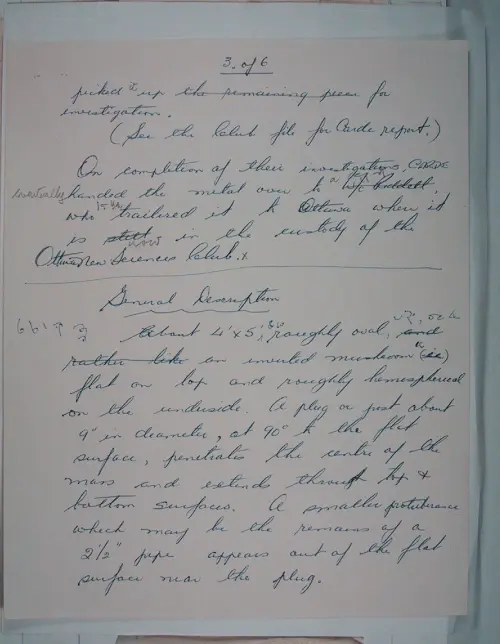 3. of 6
picked it up the remaining piece for
investigation.
(See the Club file for Carde report.)
On completion of their investigations, CARDE
eventually handed the metal over to a
who trailered it to Ottawa where it
is still now in the custody of the
Ottawa New Sciences Club. x
General Description
About 4'x5', roughly oval, and
rather like an inverted mushroom (ie)
flat on top and roughly hemispherical
on the underside. A plug or post about
9" in diameter, at 90° to the flat
surface, penetrates the centre of the
mass and extends through top &
bottom surfaces. A smaller protuberance
which may be the remains of a
2 1/2" pipe appears out of the flat
surface near the plug.